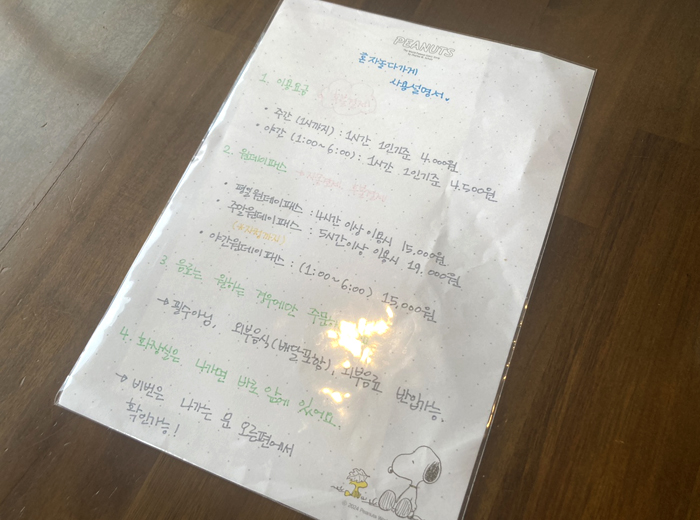 PEANUTS
혼자놀다가게
사용설명서.
1. 이용요금
• 주간 (1시까지) : 1시간 1인기준 4.000원
• 야간 (1:00~6:00) : 1시간 1인기준 4.500원
2. 원데이패스
• 평일원데이패스 : 4시간 이상 이용시 15.000원
• 주말원데이패스 : 5시간이상 이용시 19.000원
• 야간원데이패스 : (1:00~6:00) 15,000원
3. 음료는 원하는 경우에만 주문.
→ 필수아님, 외부음식(배달포함), 외부음료 반입가능.
4. 화장실은 나가면 바로 앞에 있어요.
→ 비번은 나가는 문 오른편에서
확인가능!